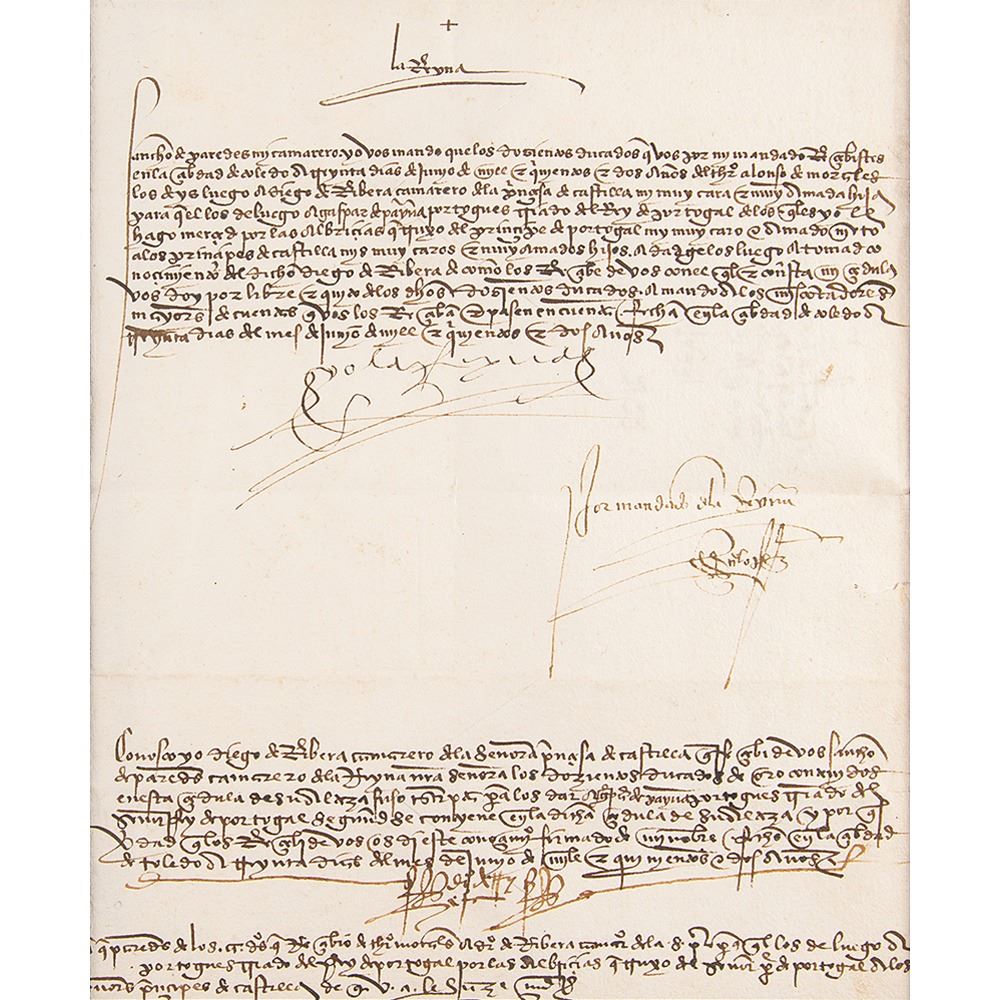 +
la Reyna
Sancho de paredes my camarero yo vos mando que los dozientos ducados q̄ vos por my mandado Resçebistes
en la çibdad de toledo a treynta dias de junio de mill e quinientos e dos años del thro alonso de morales
los deys luego a diego de Ribera camarero de la prinçesa de castilla mi muy cara e muy amada hija
para q̄ el los de luego a gaspar de portogues criado del Rey de portogal de los q̄les yo le
hago merçed por las albriçias q̄ truxo del prinçipe de portogal my muy caro e amado nyeto
a los prinçipes de castilla mys muy caros e muy amados hijos. e dadgelos luego e tomad co
noçimiento del dicho diego de Ribera de como los Resçibe de vos con el q̄l e con esta mi çedula
vos doy por libre e quito de los dhos dozientos ducados. e mando a los mis contadores
mayores de cuentas q̄ vos los Resçiban e pasen en cuenta. fecha en la çibdad de toledo a
treynta dias del mes de junio de mill e quinientos e dos años
yo la Reyna
Por mandado de la Reyna
Conosco yo diego de Ribera camarero de la señora prinçesa de castilla q̄ Resçebi de vos sancho
de paredes camarero de la Reyna nra señora los dozientos ducados de oro contenidos
en esta çedula de su alteza suso para los dar a portogues criado del
señor Rey de portogal segund se contyene en la dicha çedula de su alteza y por q̄
es verdad q̄ los Resçebi de vos os di este conoçimiento firmado de mi nombre fecho en la çibdad
de toledo a treynta dias del mes de junio de mill e quinientos e dos años
paredes de los .cc. dos q̄ Resçibio de thro morales a diego de Ribera camarero de la s. prinçesa para q̄ el los de luego a
portogues criado del Rey de portogal por las albriçias q̄ truxo del señor prinçipe de portogal a los
señores prinçipes de castilla